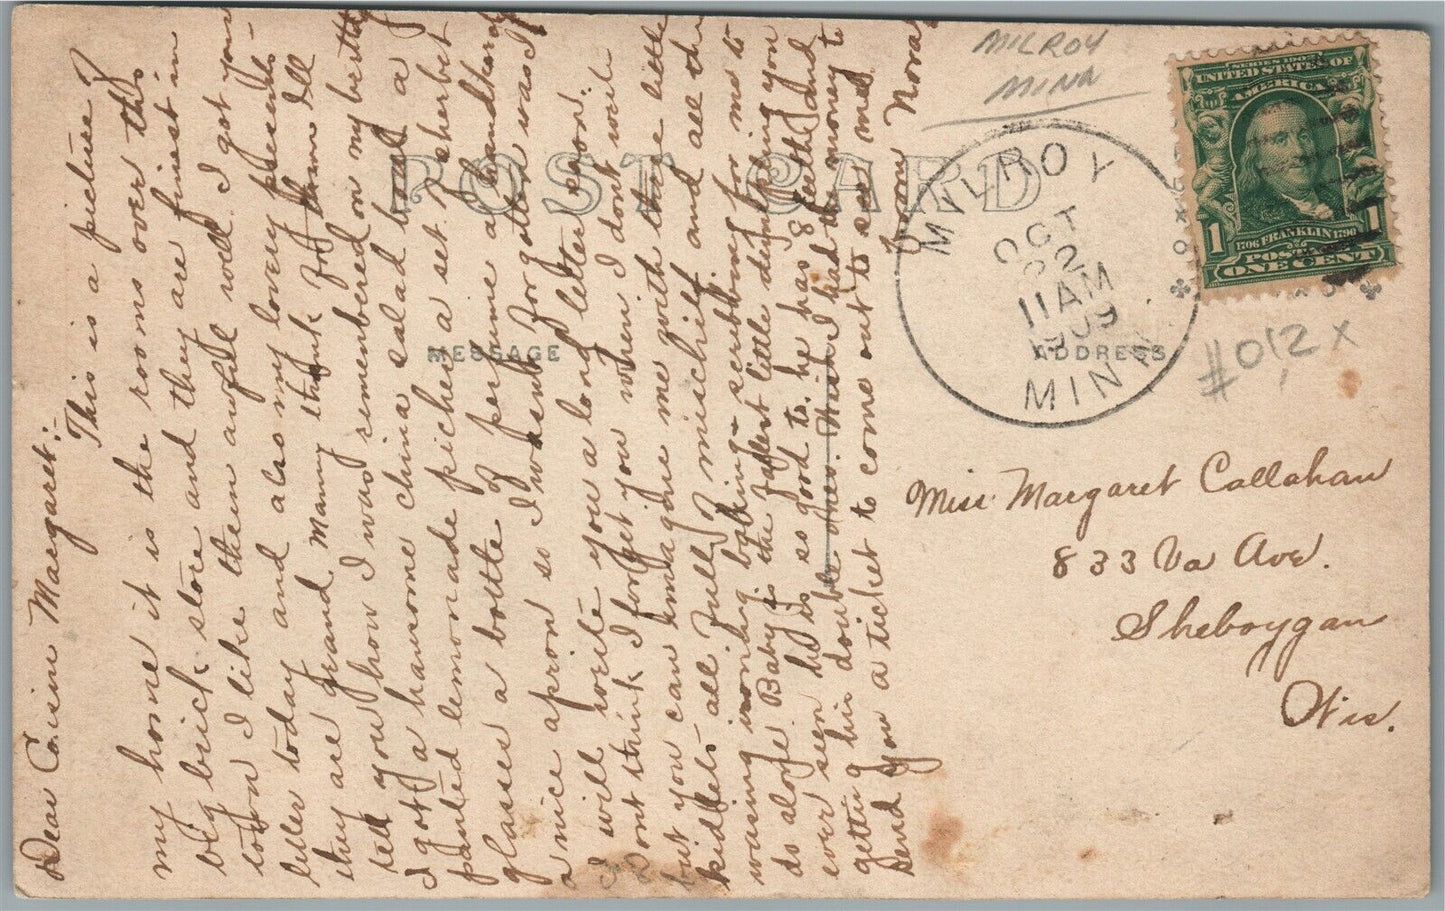 Dear Cousin Margaret:-
This is a picture of
my home it is the rooms over this
big brick store and they are finest in
town I like them awful well. I got your
letter today and also my lovely presents-
they are grand. Many thank for them I'll
tell you how I was remembered on my birthday
I got a hansome china salad bowl a
painted lemonade picher a set of sherbet
glasses a bottle of perfume a handkerchief
a nice apron so I wasent forgotted was I
I will write you a long letter soon.
Dont think I forget you when I dont write
but you can imagine me with three little
kidlets all full of mischief and all the
wasing ironing baking - scribbing for me to
do alone. Baby is the fatest little dumbling you
ever seen he is so good to, he has 8 teeth and
getting his double ones. Wish I had the money to
send you a ticket to come out to see me.
From Nora
POST CARD
MESSAGE
ADDRESS
MILROY
MINN
MILROY
OCT
22
11 AM
1909
MINN
SERIES 1902
UNITED STATES OF
AMERICA
1706 FRANKLIN 1790
POSTAGE
1 1
ONE CENT
#012x
Miss Margaret Callahan
833 Va Ave.
Sheboygan
Wis.
32